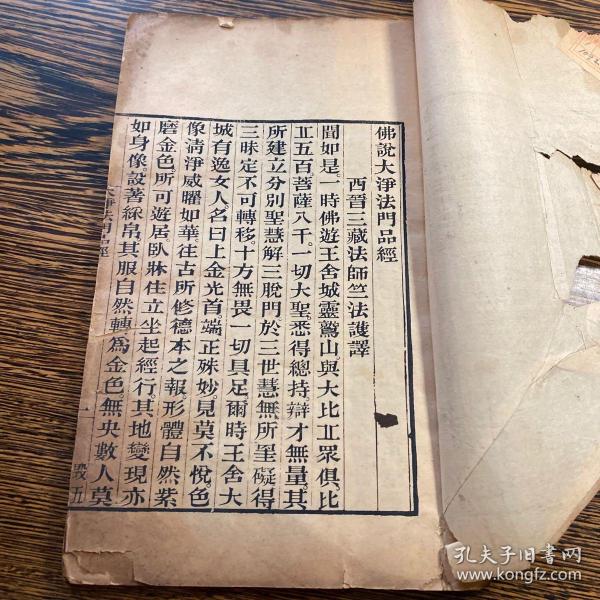 佛說大淨法門品經
西晉三藏法師竺法護譯
聞如是一時佛遊王舍城靈鷲山與大比丘眾俱比
丘五百菩薩八千一切大聖悉得總持辯才無量其
所建立分別聖慧解三脫門於三世慧無所罣礙得
三昧定不可轉移十方無畏一切具足爾時王舍大
城有逸女人名曰上金光首端正殊妙見莫不悅色
像清淨威曜如華往古所修德本之報形體自然紫
磨金色所可遊居臥牀住立坐起經行其地變現亦
如身像設著綵帛其服自然轉為金色無央數人莫
大淨法門品經
一
毀五
孔夫子旧书网
www.kongfz.com